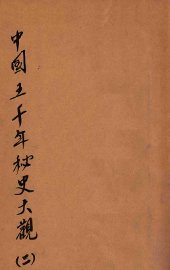 中國五千年秘史大觀(二)